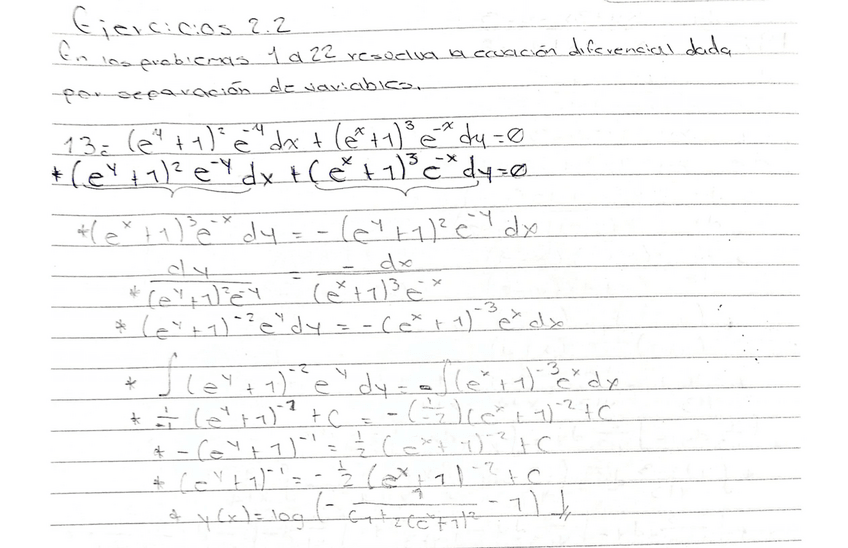 Ejercicios 2.2
En los problemas 1 a 22 resuelva la ecuación diferencial dada
por separación de variables.
13= (e^y + 1)² e^-y dx + (e^x + 1)³ e^-x dy = 0
* (e^y + 1)² e^-y dx + (e^x + 1)³ e^-x dy = 0
* (e^x + 1)³ e^-x dy = - (e^y + 1)² e^-y dx
* dy / (e^y + 1)² e^-y = - dx / (e^x + 1)³ e^-x
* (e^y + 1)^-2 e^y dy = - (e^x + 1)^-3 e^x dx
* ∫ (e^y + 1)^-2 e^y dy = - ∫ (e^x + 1)^-3 e^x dx
* 1/-1 (e^y + 1)^-1 + C = - (1/-2) (e^x + 1)^-2 + C
* - (e^y + 1)^-1 = 1/2 (e^x + 1)^-2 + C
* (e^y + 1)^-1 = - 1/2 (e^x + 1)^-2 + C
* y(x) = log (- 1 / C1 + 2(e^x + 1)² - 1)